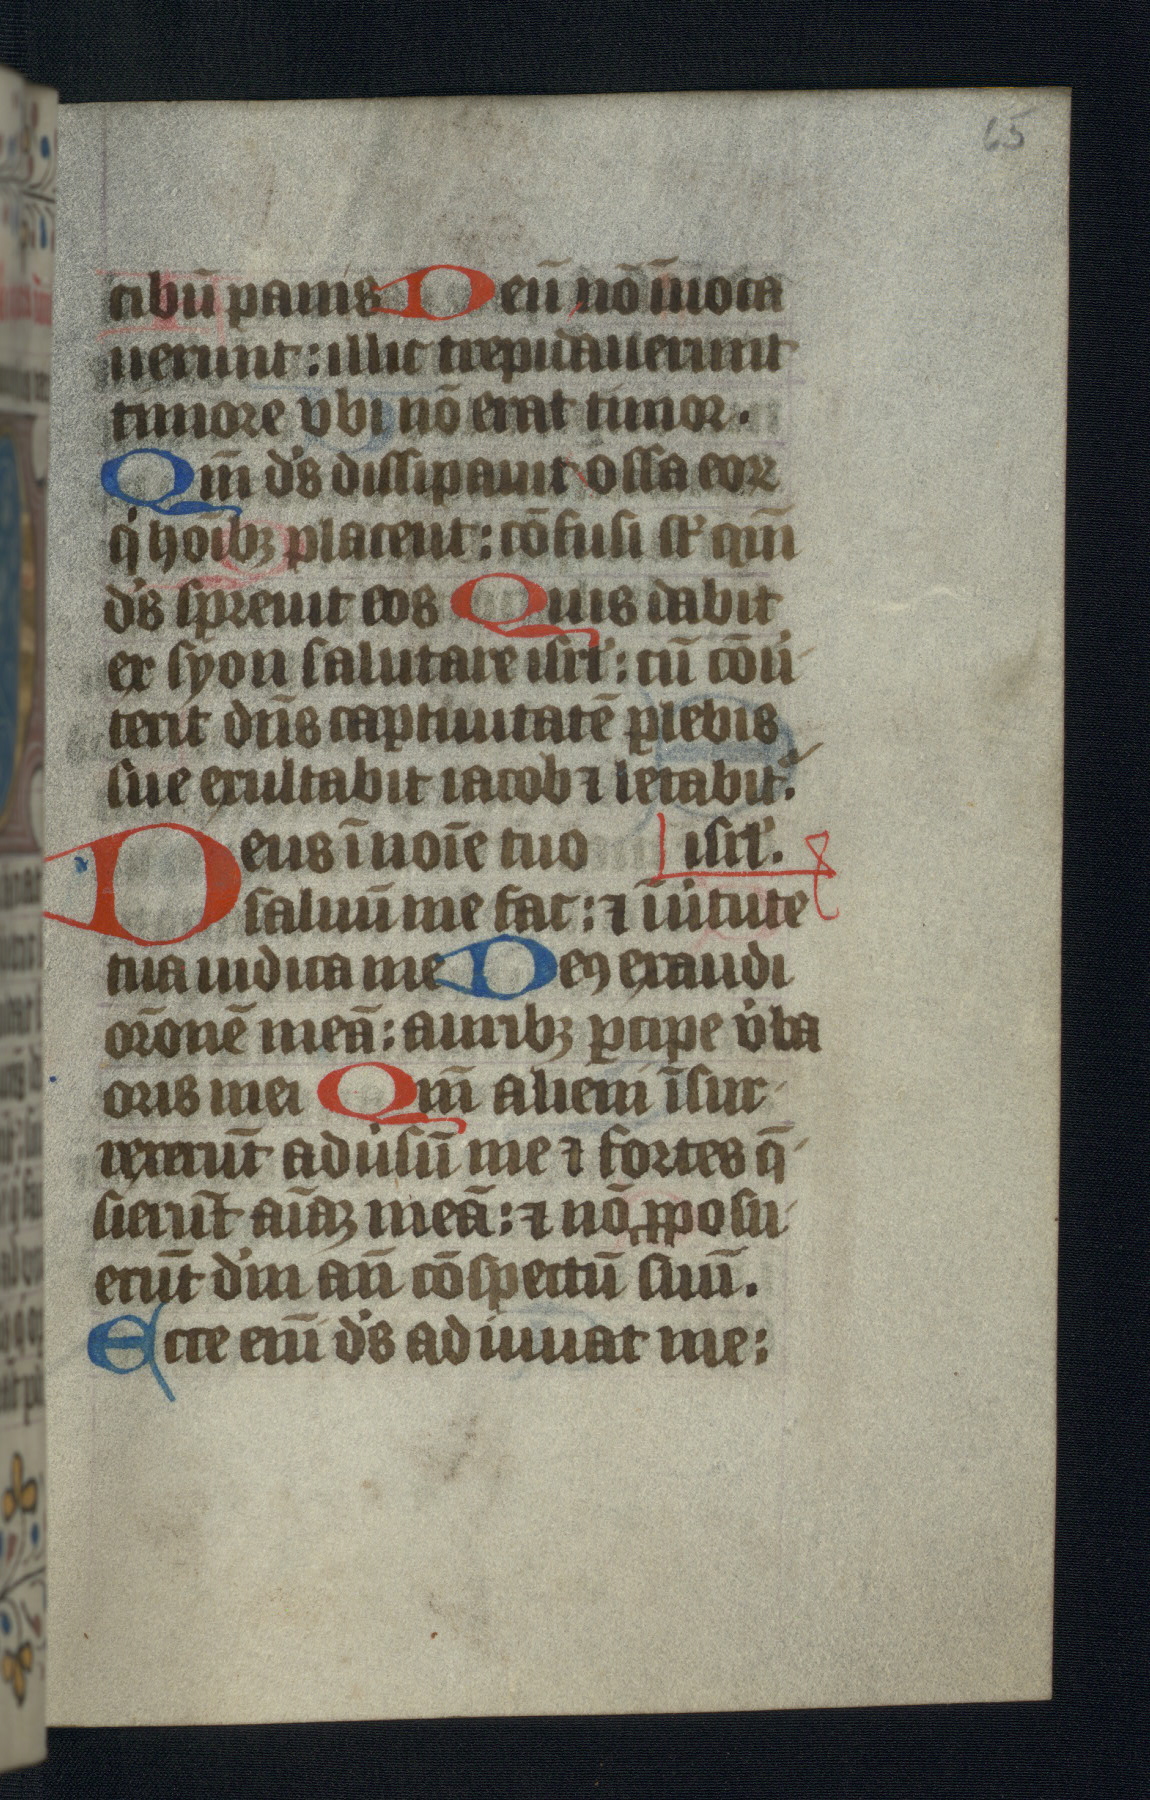 65
cibū panis Deū nō īuoca
uerunt: illic trepidauerunt
timore vbi nō erat timor.
Qm̄ ds dissipauit ossa eoꝝ
q hoībꝫ placent: cōfusi st qm̄
ds spreuit eos Quis dabit
ex syon salutare isrl: cū cōu
terit dn̄s captiuitatē plebis
sue exultabit iacob ⁊ letabit.
Deus ī noīe tuo isrl.
saluū me fac: ⁊ ī uͥtute
tua iudica me Deꝯ exaudi
orōnē meā: auribꝫ ꝑcipe uͥba
oris mei Qm̄ alieni īsur
rexerūt aduͥsū me ⁊ fortes q̄
sierūt aīaꝫ meā: ⁊ nō ꝓposu
erūt dm an̄ cōspectū suū.
Ecce enī ds adiuuat me: